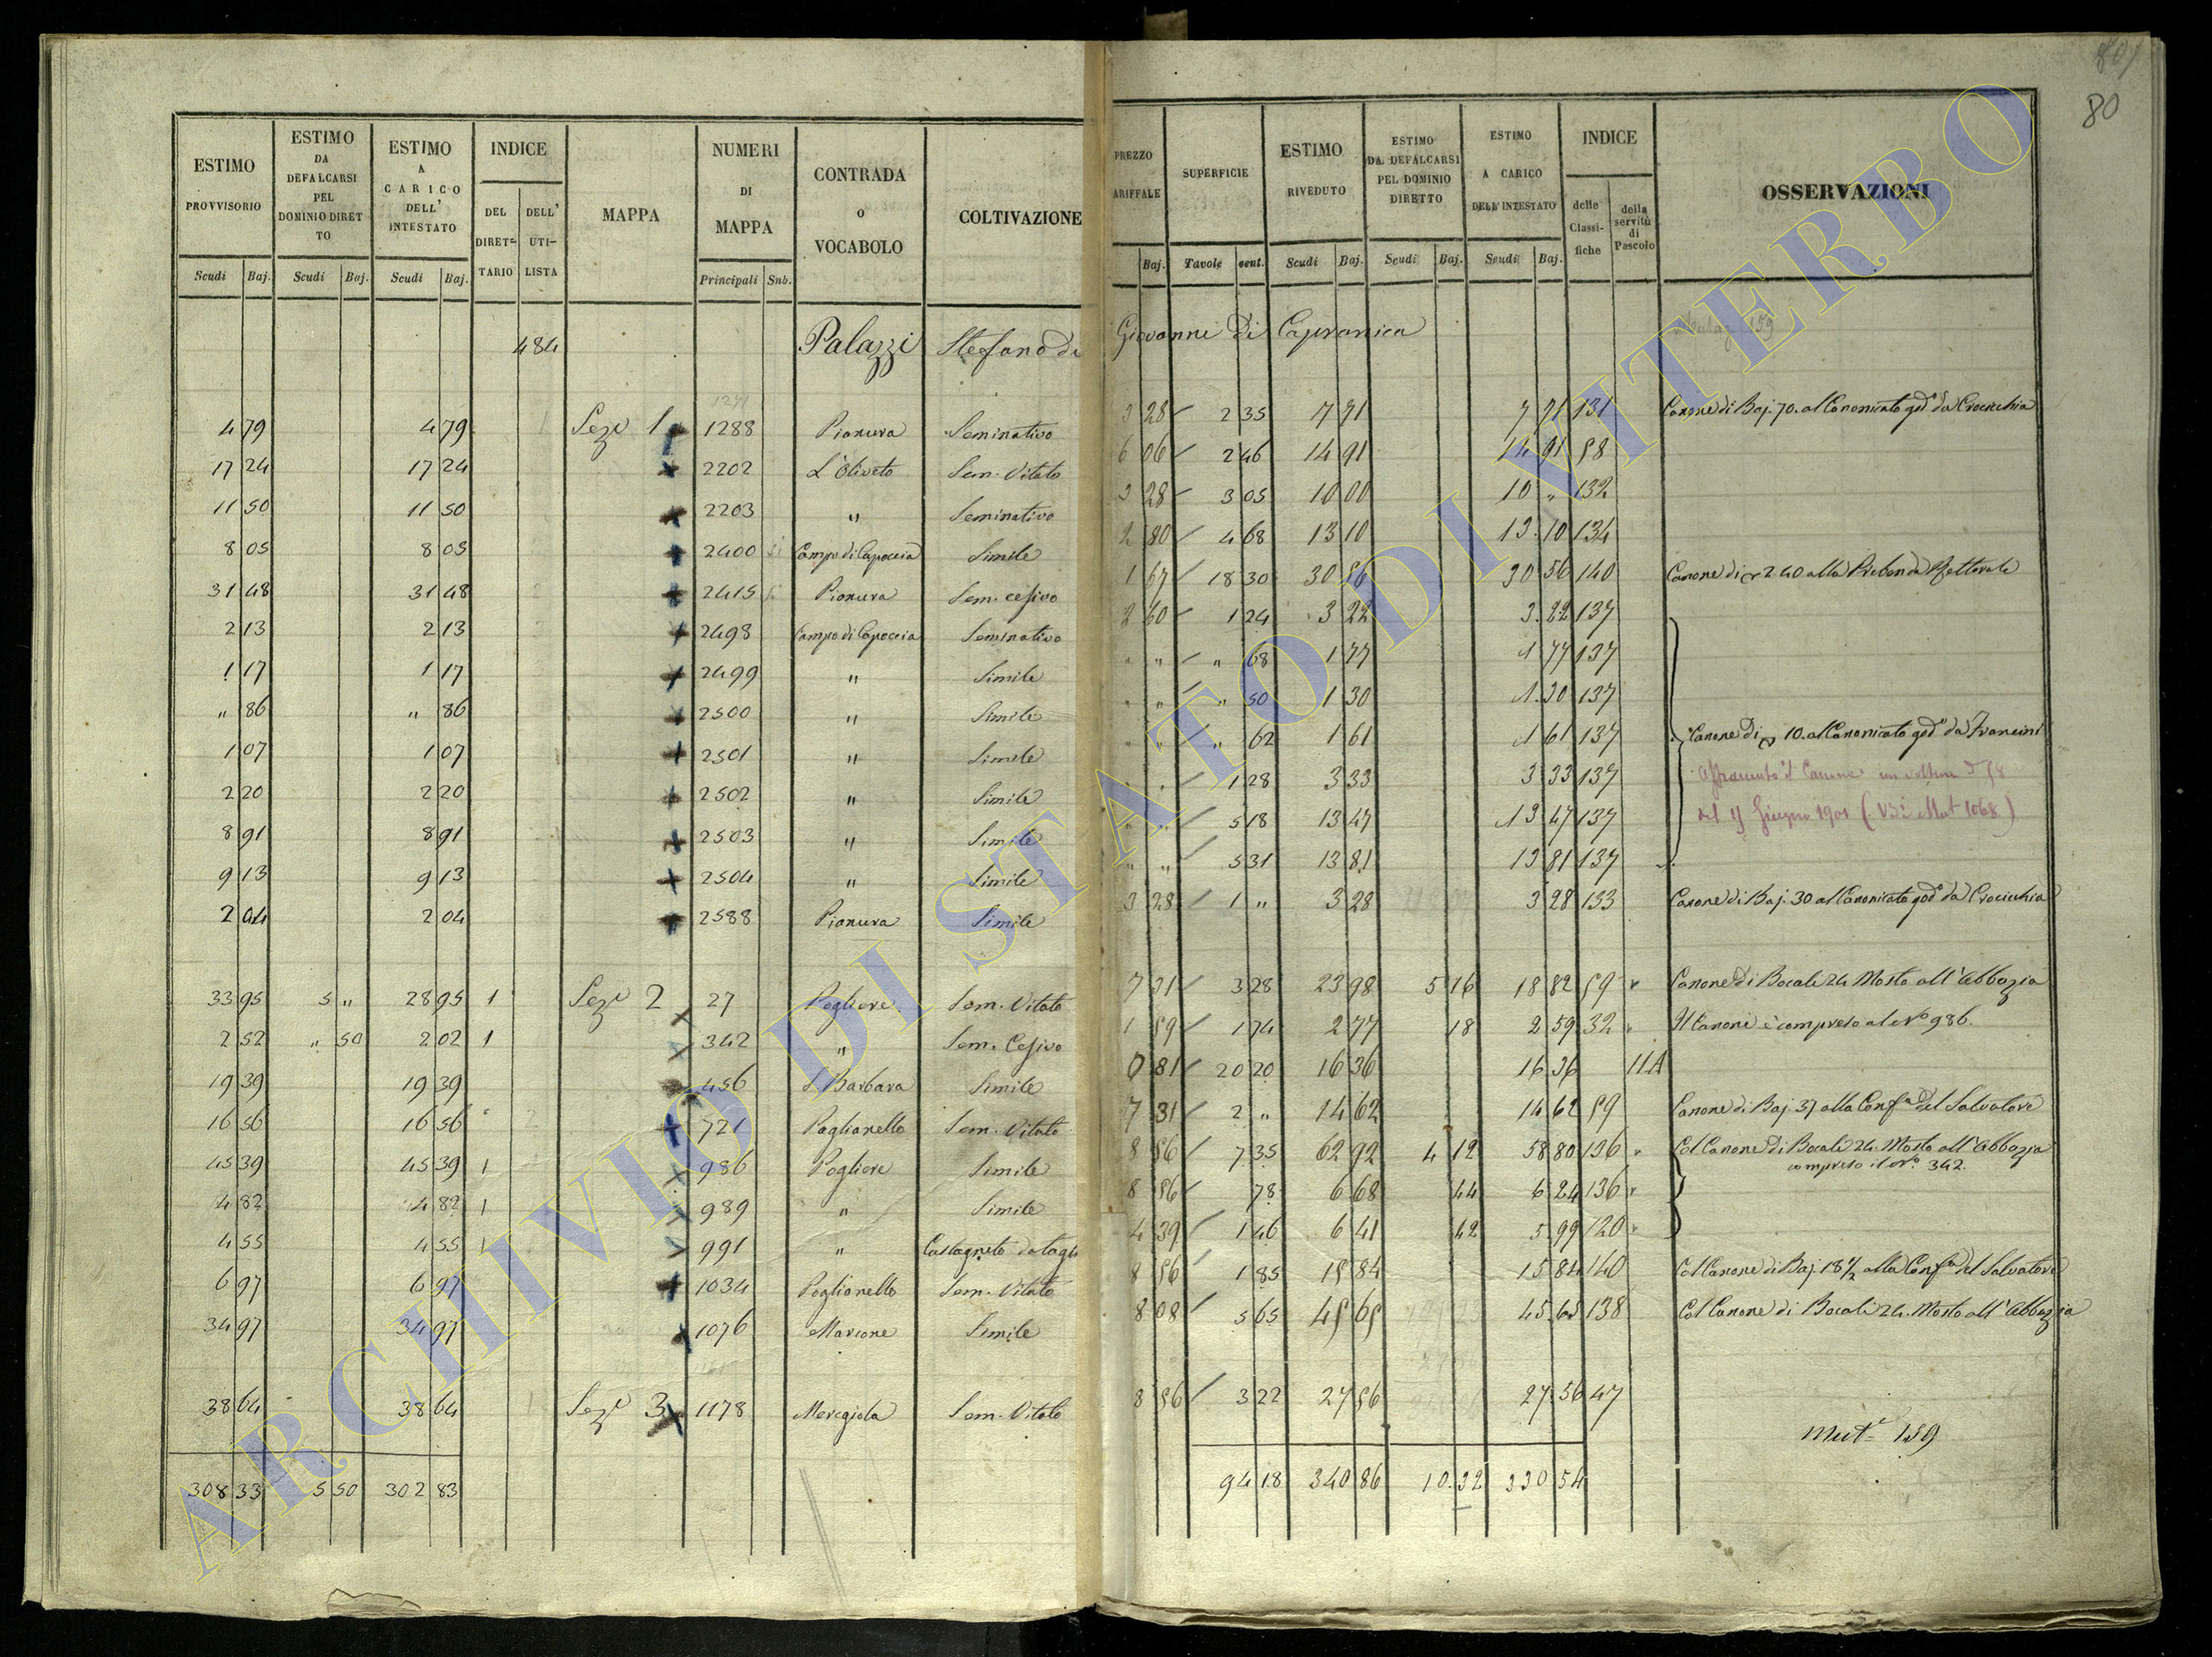 80
ESTIMO PROVVISORIO | ESTIMO DA DEFALCARSI PEL DOMINIO DIRETTO | ESTIMO A CARICO DELL' INTESTATO | INDICE | MAPPA | NUMERI DI MAPPA | CONTRADA O VOCABOLO | COLTIVAZIONE | PREZZO ARIFFALE | SUPERFICIE | ESTIMO RIVEDUTO | ESTIMO DA DEFALCARSI PEL DOMINIO DIRETTO | ESTIMO A CARICO DELL'INTESTATO | INDICE | OSSERVAZIONI
DEL DIRETTARIO | DELL' UTILISTA | delle Classifiche | della servitù di Pascolo
Scudi | Baj. | Scudi | Baj. | Scudi | Baj. | Principali | Snb. | Baj. | Tavole | cent. | Scudi | Baj. | Scudi | Baj. | Scudi | Baj.
484 Palazzi Stefano di Giovanni di Capranica
4 79 | 4 79 | Sez.e 1 | 1288 | Pianura | Seminativo | 3 28 | 2 35 | 7 71 | 7 71 | 131 | Canone di Baj. 70. al Canonicato god.o da Crocicchia
17 24 | 17 24 | 2202 | L'Oliveto | Sem. Vitato | 6 06 | 2 46 | 14 91 | 14 91 | 58
11 50 | 11 50 | 2203 | " | Seminativo | 3 28 | 3 05 | 10 00 | 10 " | 132
8 05 | 8 05 | 2400 | Campo di Capoccia | Simile | 2 80 | 4 68 | 13 10 | 13 10 | 134
31 48 | 31 48 | 2415 | Pianura | Sem. cesivo | 1 67 | 18 30 | 30 56 | 30 56 | 140 | Canone di 2 40 alla Prebenda Rettorale
2 13 | 2 13 | 2498 | Campo di Capoccia | Seminativo | 2 60 | 1 24 | 3 22 | 3 22 | 137
1 17 | 1 17 | 2499 | " | Simile | " " | " 68 | 1 77 | 1 77 | 137
" 86 | " 86 | 2500 | " | Simile | " " | " 50 | 1 30 | 1 30 | 137
1 07 | 1 07 | 2501 | " | Simile | " " | " 62 | 1 61 | 1 61 | 137 | Canone di 10. al Canonicato god.o da Francini
2 20 | 2 20 | 2502 | " | Simile | " " | 1 28 | 3 33 | 3 33 | 137 | Affrancato il Canone
8 91 | 8 91 | 2503 | " | Simile | " " | 5 18 | 13 47 | 13 47 | 137 | Giugno 1901 (V.di Mut 1068)
9 13 | 9 13 | 2504 | " | Simile | " " | 5 31 | 13 81 | 13 81 | 137
2 04 | 2 04 | 2588 | Pianura | Simile | 3 28 | 1 " | 3 28 | 3 28 | 133 | Canone di Baj. 30 al Canonicato god.o da Crocicchia
33 95 | 5 " | 28 95 | 1 | Sez.e 2 | 27 | Pogliere | Sem. Vitato | 7 31 | 3 28 | 23 98 | 5 16 | 18 82 | 59 | Canone di Bocali 24 Mosto all'Abbazia
2 52 | " 50 | 2 02 | 1 | 342 | " | Sem. Cesivo | 1 59 | 1 74 | 2 77 | 18 | 2 59 | 32 | Il Canone è compreso al N.o 986.
19 39 | 19 39 | 456 | S. Barbara | Simile | 0 81 | 20 20 | 16 36 | 16 36 | 11.A
16 56 | 16 56 | 721 | Poglianello | Sem. Vitato | 7 31 | 2 " | 14 62 | 14 62 | 59 | Canone di Baj. 37 alla Conf.a del Salvatore
45 39 | 45 39 | 1 | 986 | Pogliere | Simile | 8 56 | 7 35 | 62 92 | 4 12 | 58 80 | 136 | Col Canone di Bocali 24. Mosto all'Abbazia
compreso il N.o 342.
4 82 | 4 82 | 1 | 989 | " | Simile | 8 56 | 78 | 6 68 | 44 | 6 24 | 136
4 55 | 4 55 | 1 | 991 | " | Castagneto da tagli | 4 39 | 1 46 | 6 41 | 42 | 5 99 | 120
6 97 | 6 97 | 1034 | Poglionello | Sem. Vitato | 8 56 | 1 85 | 15 84 | 15 84 | 140 | Col Canone di Baj. 18 1/2 alla Conf.a del Salvatore
34 97 | 34 97 | 1076 | Marione | Simile | 8 08 | 5 65 | 45 65 | 45 65 | 138 | Col Canone di Bocali 24. Mosto all'Abbazia
38 64 | 38 64 | Sez.e 3 | 1178 | Meregiola | Sem. Vitato | 8 56 | 3 22 | 27 56 | 27 56 | 47
Mut.e 159
308 33 | 5 50 | 302 83 | 94 18 | 340 86 | 10 32 | 330 54
ARCHIVIO DI STATO DI VITERBO